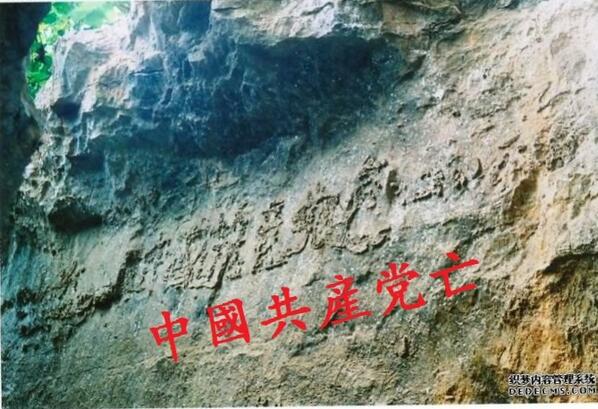 中國共産党亡
织梦内容管理系统
DEDECMS.COM